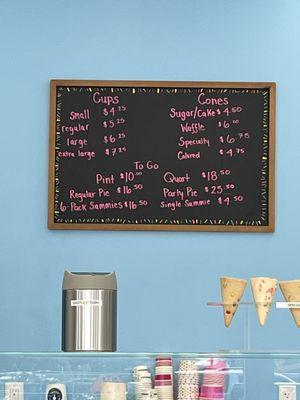 Cups
Small $4.25
regular $5.25
large $6.25
extra large $7.25
Cones
Sugar/Cake $4.50
Waffle $6.00
Specialty $6.75
Colored $4.75
To Go
Pint $10.00
Quart $18.50
Regular Pie $16.50
Party Pie $25.50
6-Pack Sammies $16.50
Single Sammie $4.50